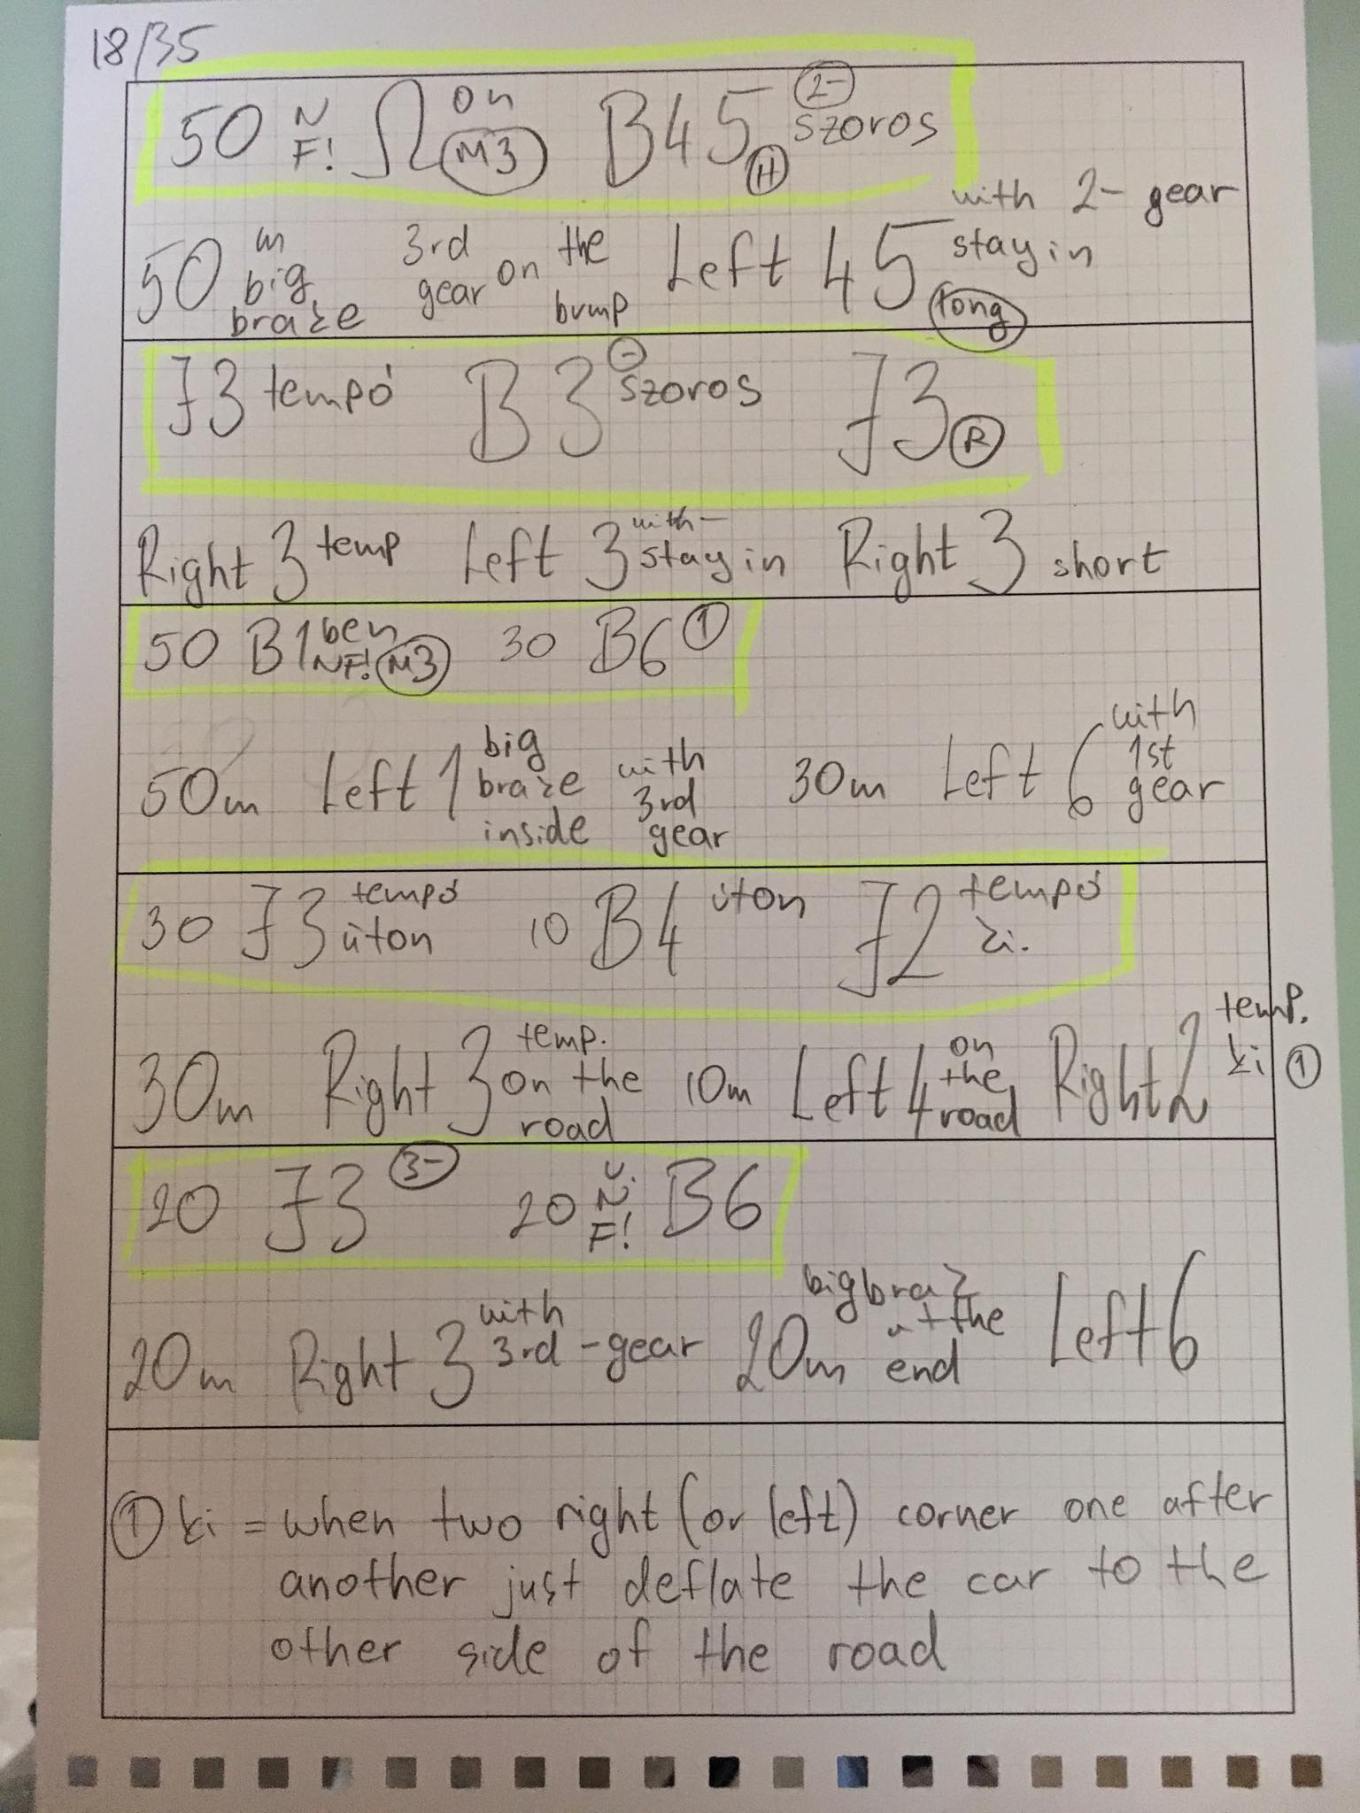 18/35
50 N F! Ω on M3 B45 H 2- szoros
50 in big brake 3rd gear on the bump Left 45 with 2- gear stay in long
J3 tempó B3 - szoros J3 R
Right 3 temp Left 3 with - stay in Right 3 short
50 B1 ben NF! M3 30 B6 1
50m Left 1 big brake inside with 3rd gear 30m Left 6 with 1st gear
30 J3 tempó úton 10 B4 úton J2 tempó ki.
30m Right 3 temp. on the road 10m Left 4 on the road Right 2 temp. ki 1
20 J3 3- 20 N. F! B6
20m Right 3 with 3rd - gear 20m big brak at the end Left 6
1 ki = when two right (or left) corner one after
another just deflate the car to the
other side of the road